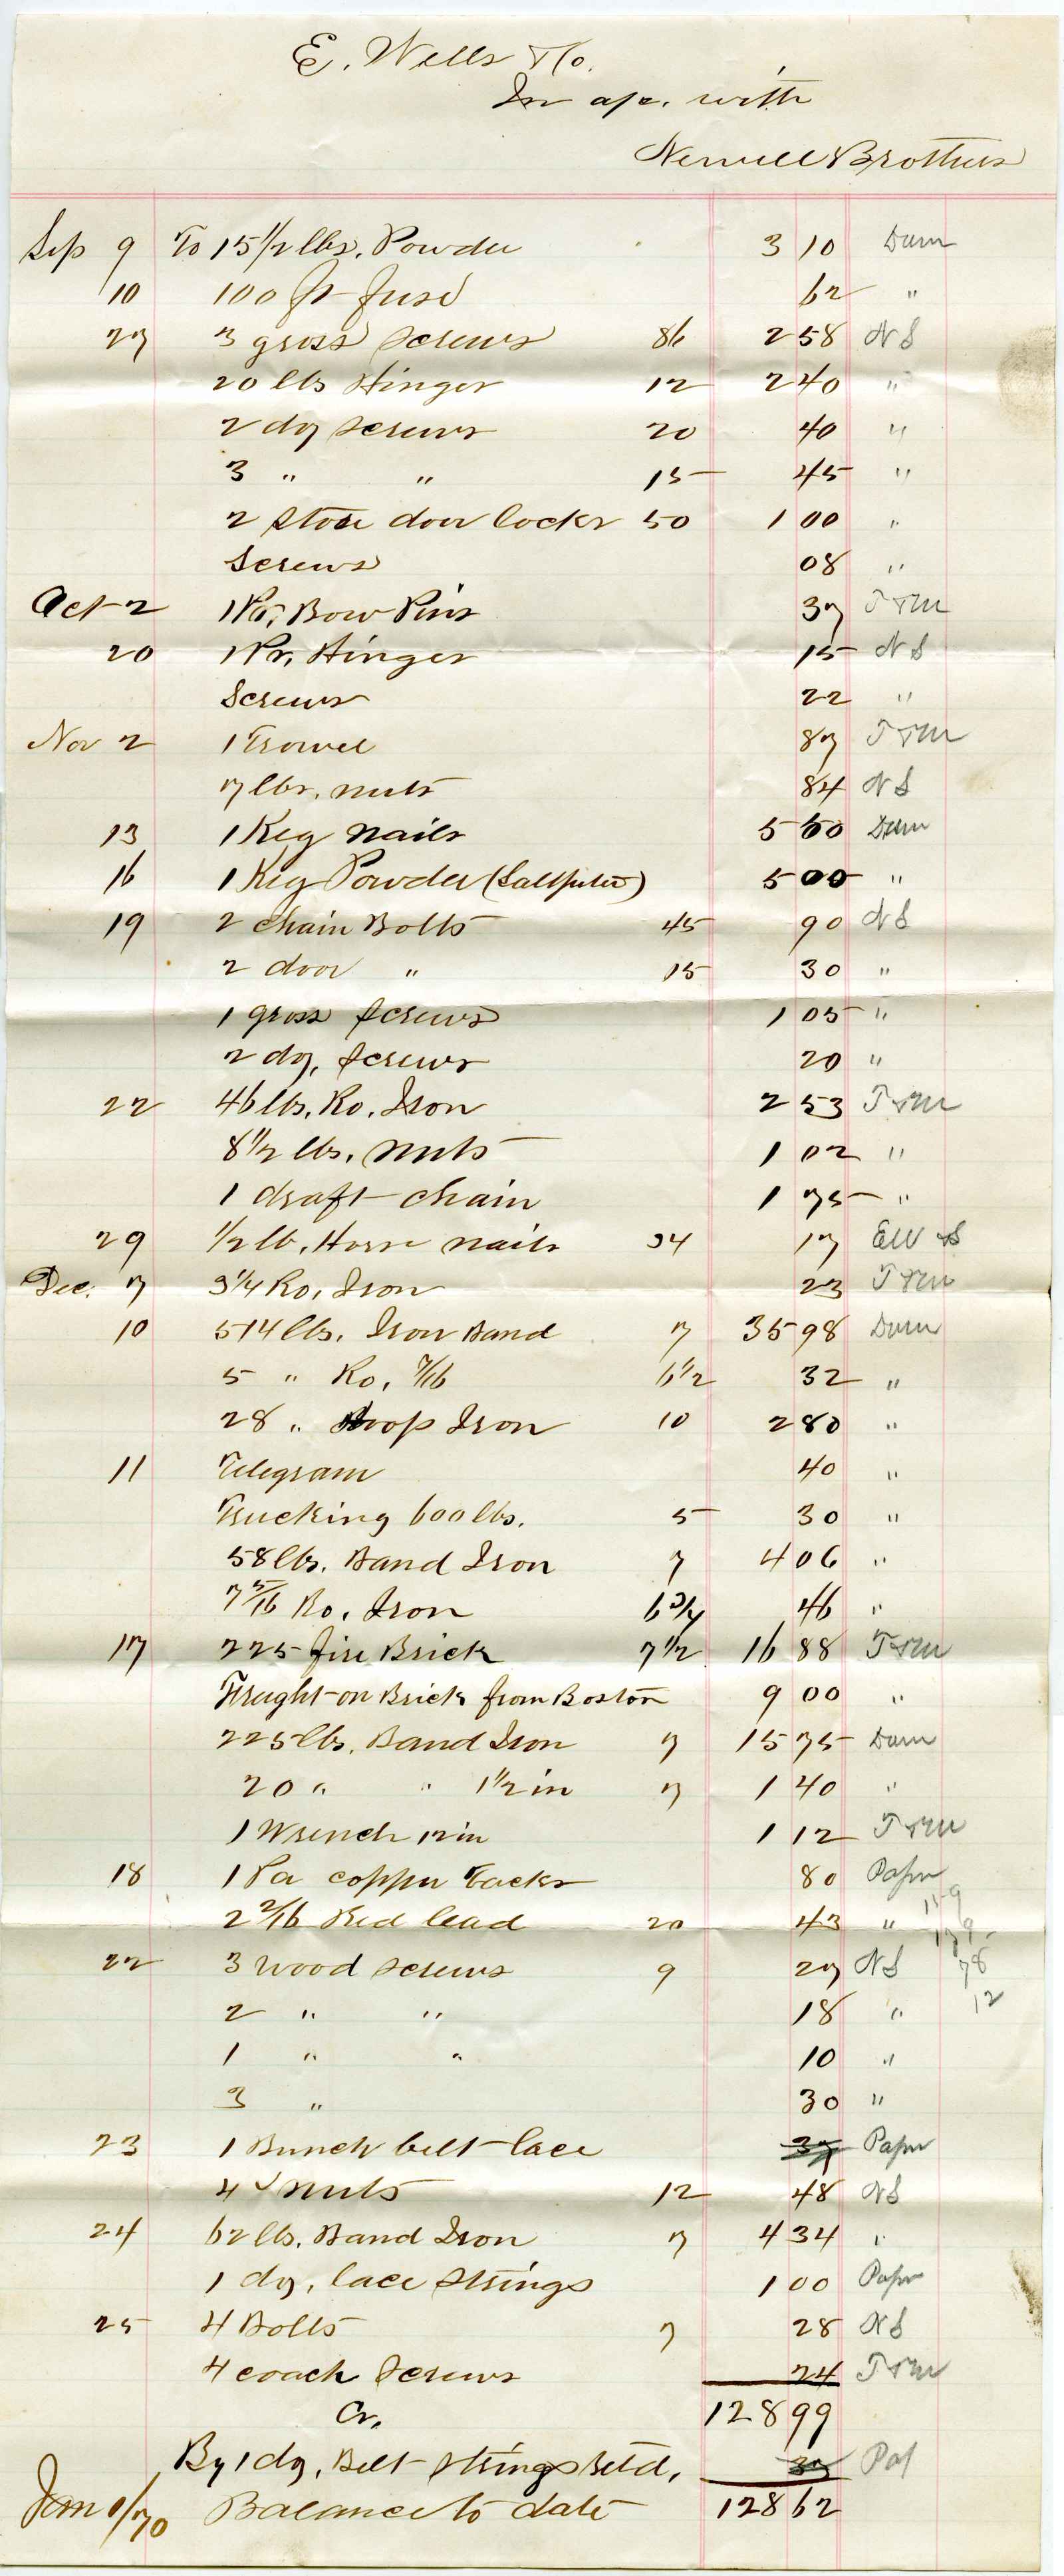 E. Wells & Co.
In a/c. with
Newell Brothers
Sep 9 To 15 1/2 lbs. Powder 3 10 Dam
10 100 ft fuse 62 "
27 3 gross screws 86 2 58 N S
20 lbs Hinges 12 2 40 "
2 dz screws 20 40 "
3 " " 15 45 "
2 store door locks 50 1 00 "
Screws 08 "
Oct 2 1 Pr. Bow Pins 37 T & M
20 1 Pr. Hinges 15 N S
Screws 22 "
Nov 2 1 Trowel 87 T & M
7 lbs. nuts 84 N S
13 1 Keg Nails 5 50 Dam
16 1 Keg Powder (Saltpeter) 5 00 "
19 2 Chain Bolts 45 90 N S
2 door " 15 30 "
1 gross Screws 1 05 "
2 dz, Screws 20 "
22 46 lbs. Ro. Iron 2 53 T & M
8 1/2 lbs. nuts 1 02 "
1 draft chain 1 75 "
29 1/2 lb. Horse nails 34 17 EW & S
Dec. 7 3 1/4 Ro. Iron 23 T & M
10 514 lbs. Iron Band 7 35 98 Dam
5 " Ro. 7/16 6 1/2 32 "
28 " Hoop Iron 10 2 80 "
11 Telegram 40 "
Trucking 600 lbs. 5 30 "
58 lbs. Band Iron 7 4 06 "
7 5/16 Ro. Iron 6 3/4 46 "
17 225 fire Brick 7 1/2 16 88 T & M
Freight on Bricks from Boston 9 00 "
225 lbs. Band Iron 7 15 75 Dam
20 " " 1 1/2 in 7 1 40 "
1 Wrench 12 in 1 12 T & M
18 1 Pa copper tacks 80 Paper
2 2/16 Red lead 20 43 "
22 3 wood screws 9 27 N S 78
2 " " 18 " 12
1 " " 10 "
3 " 30 "
23 1 Bunch belt lace 37 Paper
4 nuts 12 48 N S
24 62 lbs. Band Iron 7 4 34 "
1 dz, lace strings 1 00 Paper
25 4 Bolts 7 28 N S
4 coach Screws 24 T & M
Cr. 128 99
By 1 dz, Belt strings Retd, 37 Pap
Jan 1/70 Balance to date 128 62